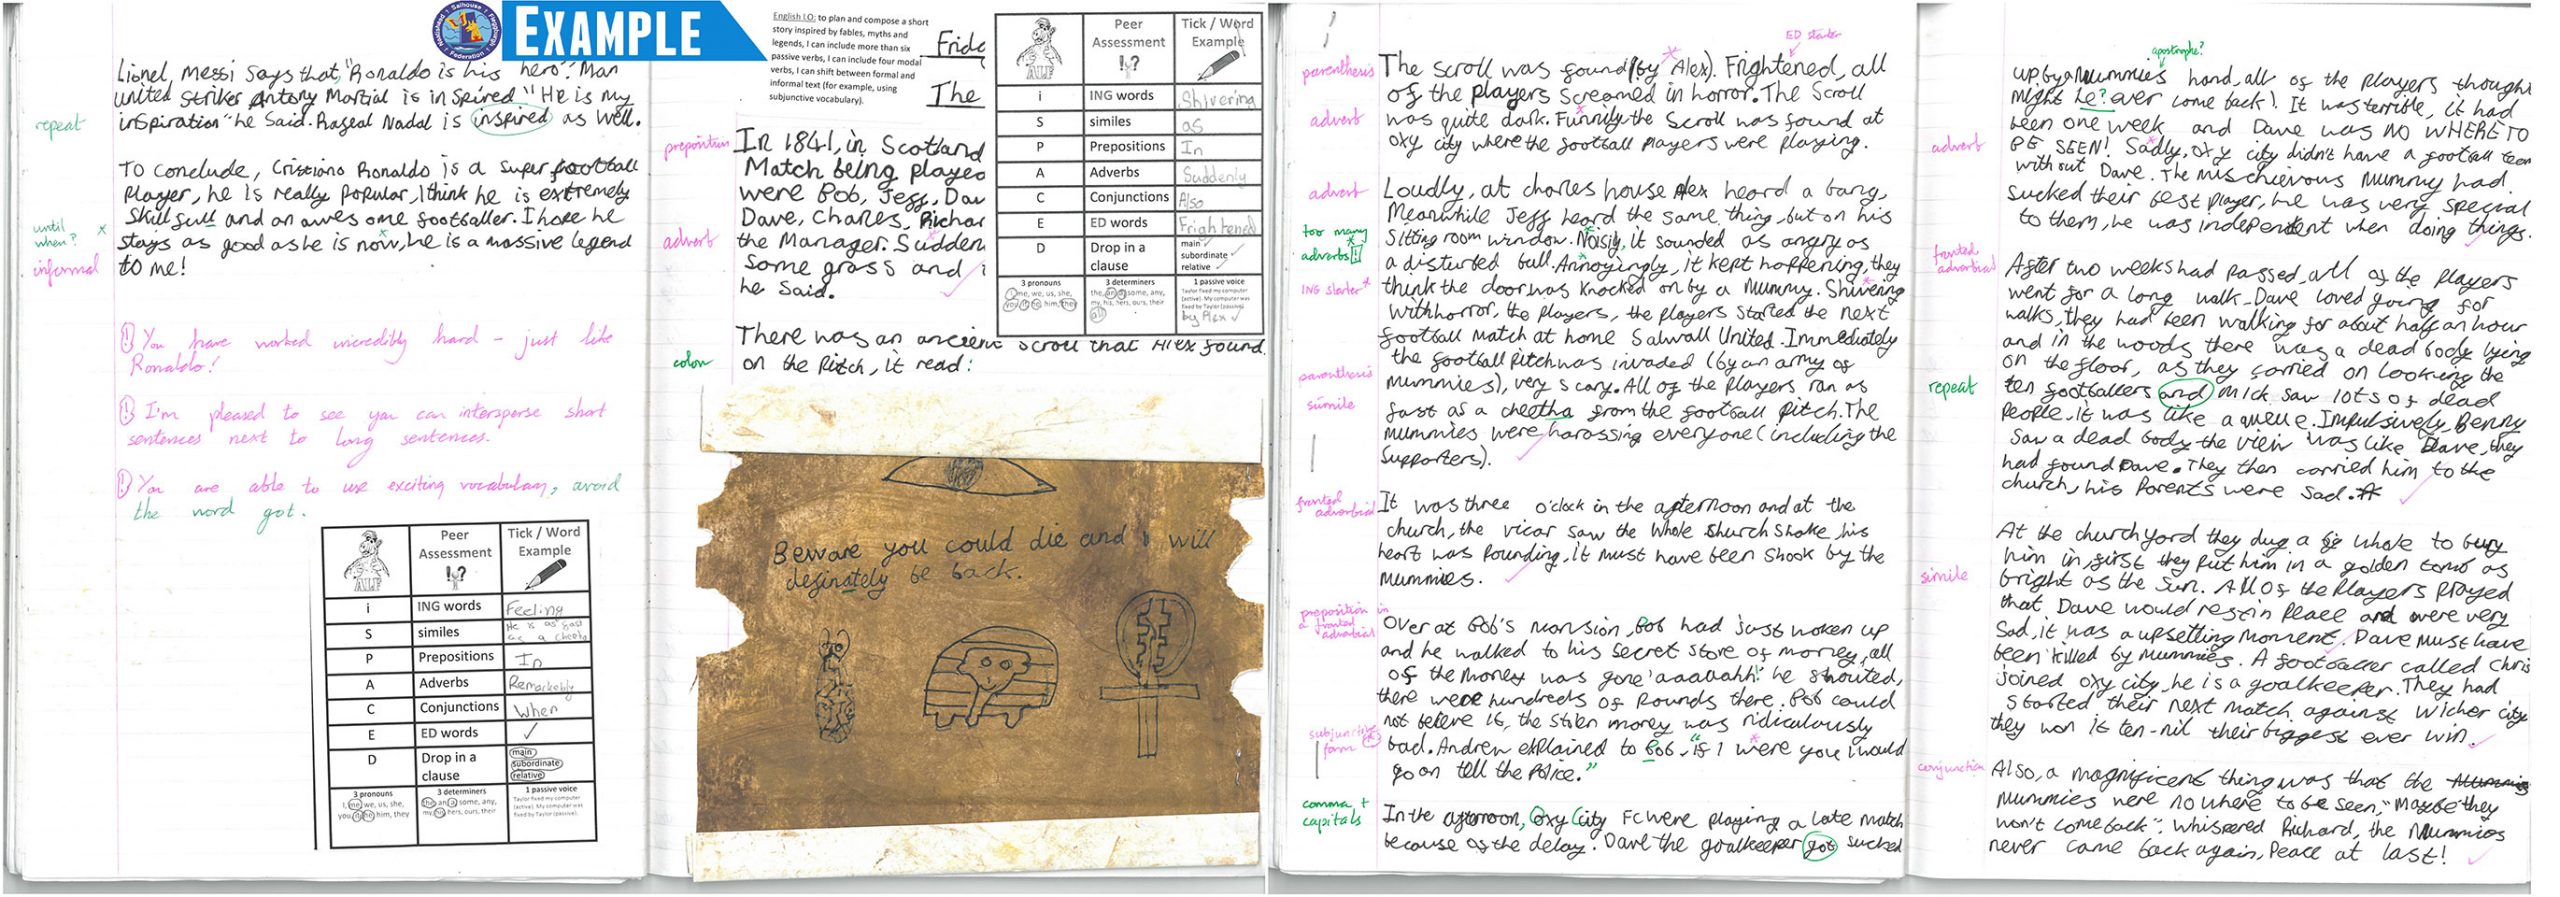 EXAMPLE
Lionel Messi says that, "Ronaldo is his hero". Man
united striker Antony Martial is inspired "He is my
inspiration" he said. Rageal Nadal is inspired as well.
repeat
To conclude, Cristiano Ronaldo is a super football
player, he is really popular, I think he is extremely
skillfull and an awesome footballer. I hope he
stays as good as he is now, he is a massive legend
to me!
until
when?
informal
You have worked incredibly hard - just like
Ronaldo!
I'm pleased to see you can intersperse short
sentences next to long sentences.
You are able to use exciting vocabulary, avoid
the word got.
ALF
Peer
Assessment
Tick / Word
Example
i ING words Feeling
S similes He is as fast as a cheeta
P Prepositions In
A Adverbs Remarkably
C Conjunctions When
E ED words ✓
D Drop in a
clause
main
subordinate
relative
3 pronouns
I, me, we, us, she,
you, it, he, him, they
3 determiners
the, an, a, some, any,
my, his, hers, ours, their
1 passive voice
Taylor fixed my computer
(active). My computer was
fixed by Taylor (passive).
English LO: to plan and compose a short
story inspired by fables, myths and
legends, I can include more than six
passive verbs, I can include four modal
verbs, I can shift between formal and
informal text (for example, using
subjunctive vocabulary).
The
ALF
Peer
Assessment
Tick / Word
Example
i ING words Shivering
S similes as
P Prepositions In
A Adverbs Suddenly
C Conjunctions Also
E ED words Frightened
D Drop in a
clause
main ✓
subordinate ✓
relative ✓
3 pronouns
I, me, we, us, she,
you, it, he, him, they
3 determiners
the, an, a, some, any,
my, his, hers, ours, their
all
1 passive voice
Taylor fixed my computer
(active). My computer was
fixed by Taylor (passive).
by Alex ✓
preposition
In 1841, in Scotland
Match being played
were Bob, Jeff, Dav
Dave, Charles, Richar
the Manager. Sudden
some grass and
he said.
advert
There was an ancient scroll that Alex found
on the Pitch, it read:
colon
Beware you could die and I will
desinately be back.
parenthesis
ED starter
The scroll was found (by Alex). Frightened, all
of the players screamed in horror. The scroll
was quite dark. Funnily the scroll was found at
oxy city where the football players were playing.
advert
advert
Loudly, at charles house Alex heard a bang,
Meanwhile Jeff heard the same thing, but on his
sitting room window. Noisily, it sounded as angry as
a disturbed bull. Annoyingly, it kept happening, they
think the door was knocked on by a mummy. Shivering
with horror, the players, the players started the next
football match at home Salwall United. Immediately
the football pitch was invaded (by an army of
mummies), very scary. All of the players ran as
fast as a cheetha from the football pitch. The
mummies were harassing everyone (including the
supporters).
too many
adverbs!
ING starter
parenthesis
simile
fronted
adverbial
It was three o'clock in the afternoon and at the
church, the vicar saw the whole church shake, his
heart was pounding, it must have been shook by the
mummies.
preposition in
a fronted
adverbial
Over at Bob's mansion, Bob had just woken up
and he walked to his secret store of money, all
of the money was gone 'aaaaahh!' he shouted,
there were hundreds of pounds there. Bob could
not beleive it, the stolen money was ridiculously
bad. Andrew explained to Bob, "if I were you I would
go on tell the Police."
subjunctive
form
comma +
capitals
In the afternoon, Oxy City FC were playing a late match
because of the delay. Dave the goalkeeper got sucked
apostrophe?
up by a Mummies hand, all of the players thought
might he? ever come back). It was terrible, it had
been one week and Dave was NO WHERE TO
BE SEEN! Sadly, oxy city didn't have a football team
without Dave. The mischievous Mummy had
sucked their best player, he was very special
to them, he was independent when doing things.
advert
fronted
adverbial
After two weeks had passed, all of the players
went for a long walk. Dave loved going for
walks, they had been walking for about half an hour
and in the woods there was a dead body lying
on the floor, as they carried on looking the
ten footballers and Mick saw lots of dead
people, it was like a queue. Impulsively, Benny
saw a dead body the view was like Dave, they
had found Dave. They then carried him to the
church, his Parents were sad.
repeat
At the church yard they dug a big whole to bury
him in, first they put him in a golden tomb as
bright as the sun. All of the players prayed
that Dave would rest in peace and were very
sad, it was a upsetting moment. Dave must have
been killed by Mummies. A footballer called Chris
joined oxy city, he is a goalkeeper. They had
started their next match against Wicher city
they won it ten-nil their biggest ever win.
simile
conjunction
Also, a magnificent thing was that the
Mummies were no where to be seen, "Maybe they
won't come back". Whispered Richard, the Mummies
never came back again, Peace at last!